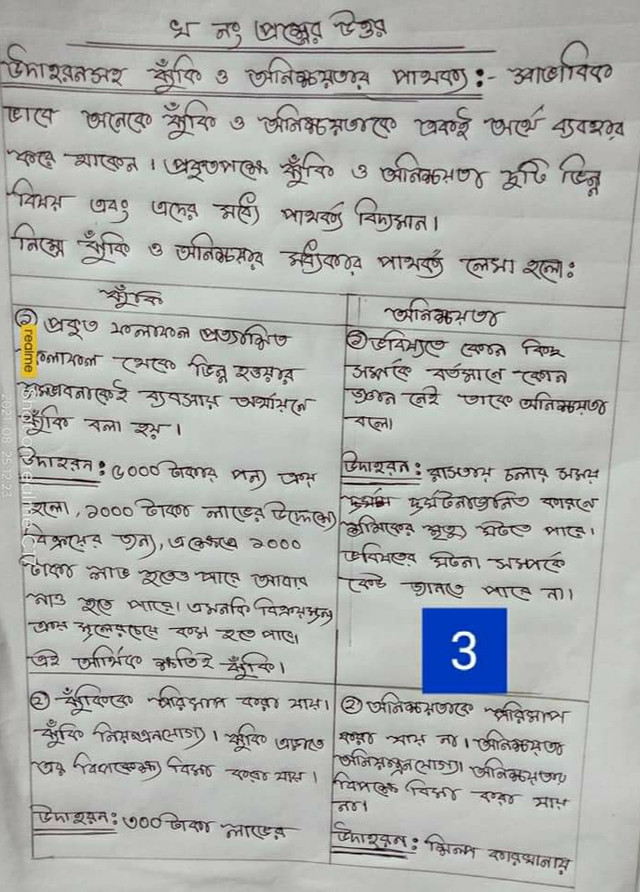 খ নং প্রশ্নের উত্তর
উদাহরনসহ ঝুঁকি ও অনিশ্চয়তার পার্থক্য :- স্বাভাবিক
ভাবে অনেকে ঝুঁকি ও অনিশ্চয়তাকে একই অর্থে ব্যবহার
করে থাকেন। প্রকৃতপক্ষে ঝুঁকি ও অনিশ্চয়তা দুটি ভিন্ন
বিষয় এবং এদের মধ্যে পার্থক্য বিদ্যমান।
নিম্নে ঝুঁকি ও অনিশ্চয়তার মধ্যকার পার্থক্য লেখা হলো:
ঝুঁকি
① প্রকৃত ফলাফল প্রত্যাশিত
ফলাফল থেকে ভিন্ন হওয়ার
সম্ভাবনাকেই ব্যবসায় অর্থায়নে
ঝুঁকি বলা হয়।
উদাহরন: ৫০০০ টাকার পন্য ক্রয়
হলো, ১০০০ টাকা লাভের উদ্দেশ্যে
বিক্রয়ের জন্য, এক্ষেত্রে ১০০০
টাকা লাভ হতেও পারে আবার
নাও হতে পারে। এমনকি বিক্রয়মূল্য
ক্রয় মূল্যের চেয়ে কম হতে পারে।
এই আর্থিক ক্ষতিই ঝুঁকি।
অনিশ্চয়তা
① ভবিষ্যতে কোন কিছু
সম্পর্কে বর্তমানে কোন
জ্ঞান নেই তাকে অনিশ্চয়তা
বলে।
উদাহরন: রাস্তায় চলার সময়
দুর্ঘটনাজনিত কারনে
শ্রমিকের মৃত্যু ঘটতে পারে।
ভবিষ্যতের ঘটনা সম্পর্কে
কেউ জানতে পারে না।
3
② ঝুঁকিকে পরিমাপ করা যায়।
ঝুঁকি নিয়ন্ত্রনযোগ্য। ঝুঁকি এড়াতে
তার বিপক্ষে বিমা করা যায়।
উদাহরন: ৩০০ টাকা লাভের
② অনিশ্চয়তাকে পরিমাপ
করা যায় না। অনিশ্চয়তা
অনিয়ন্ত্রনযোগ্য। অনিশ্চয়তার
বিপক্ষে বিমা করা যায়
না।
উদাহরন: শিল্প কারখানায়
realme
2021.08.25 12:23